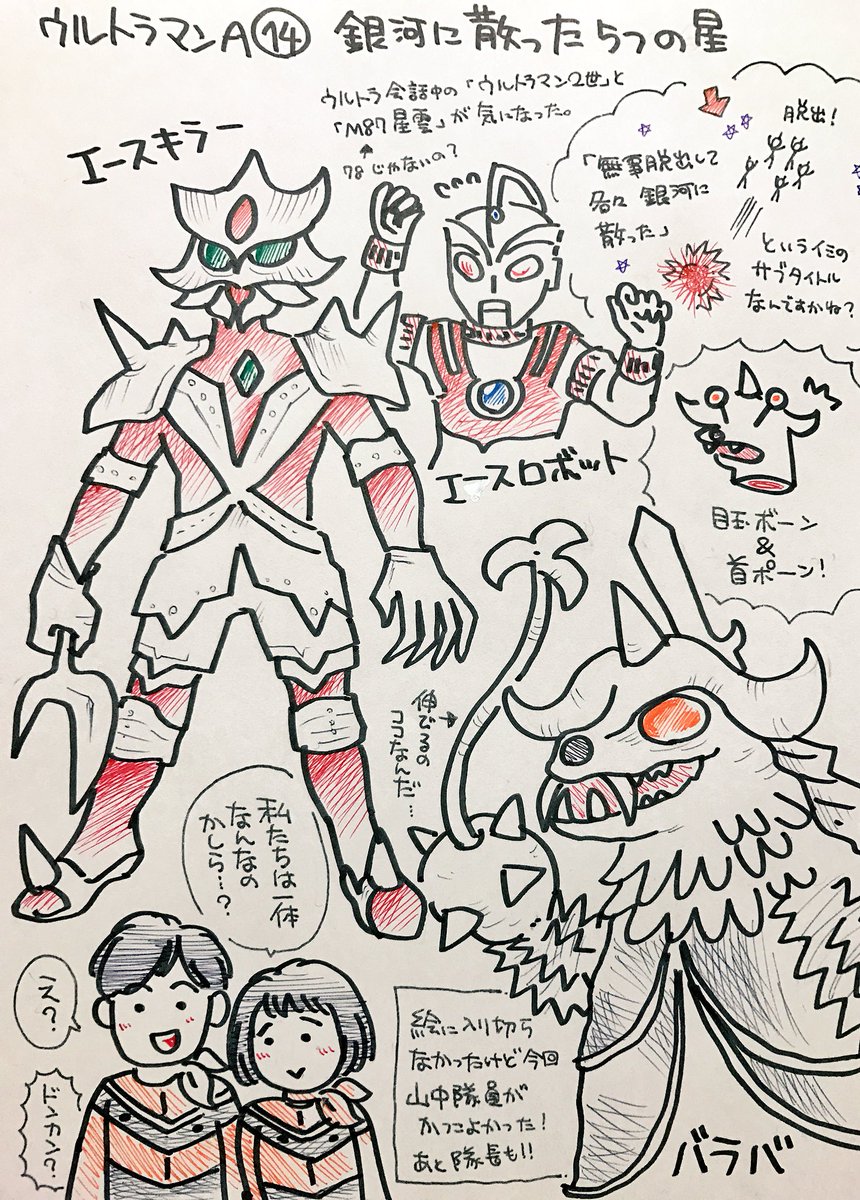 ウルトラマンA⑭ 銀河に散った5つの星
ウルトラ会話中の「ウルトラマン2世」と
「M87星雲」が気になった。
↑
78じゃないの?
エースキラー
脱出!
「無事脱出して
各々銀河に
散った」
というイミの
サブタイトル
なんですかね?
エースロボット
目玉ボーン
&
首ポーン!
伸びるの
ココなんだ…
私たちは一体
なんなの
かしら…?
え?
ドンカン?
絵に入り切ら
なかったけど今回
山中隊員が
かっこよかった!
あと隊長も!!
バラバ